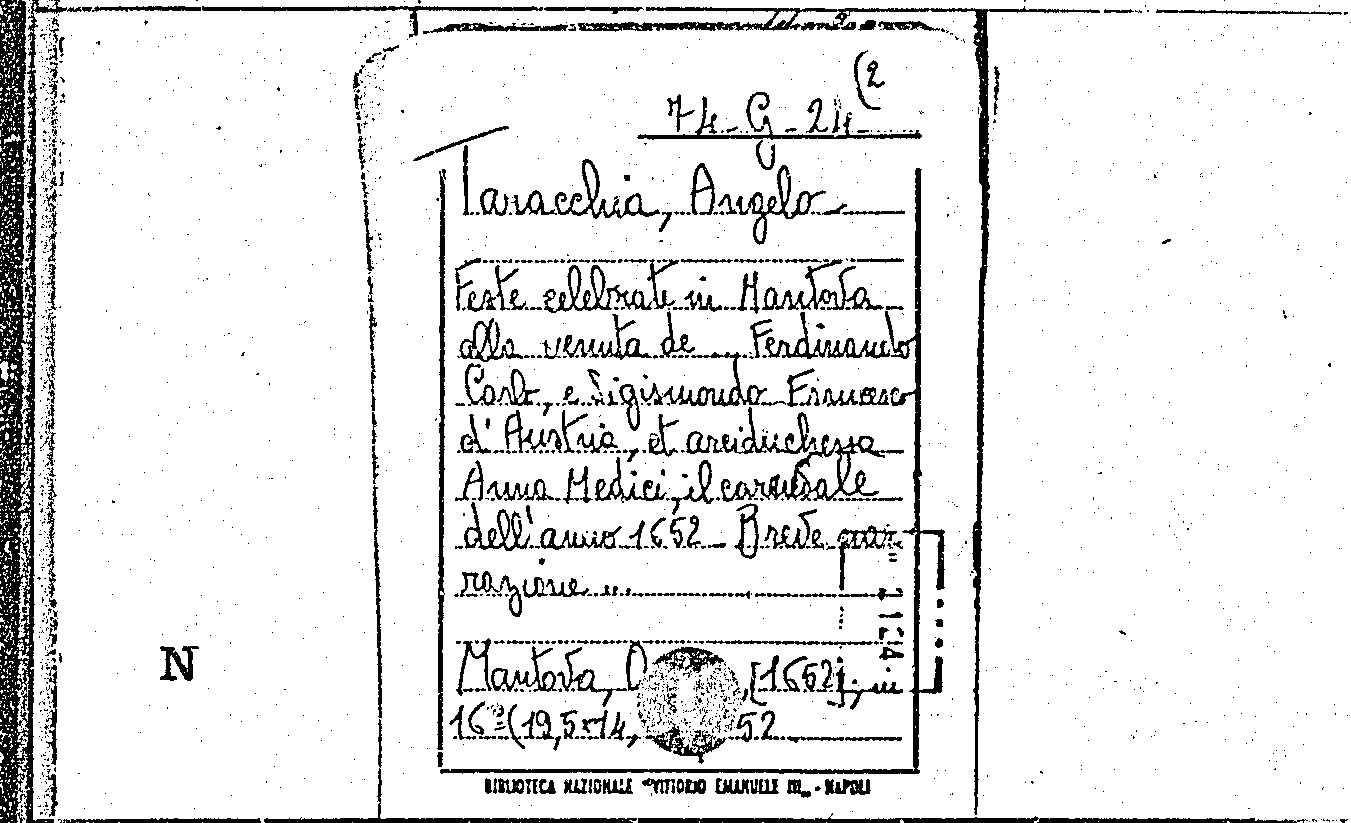 (2
74-G-24
Taracchia, Angelo
Feste celebrate in Mantova
alla venuta de ... Ferdinando
Carlo, e Sigismondo Francesco
d'Austria, et arciduchessa
Anna Medici, il carnevale
dell'anno 1652 - Breve nar=
razione ...
Mantova, [1652]; in
16º (19,5x14, 52
1124
N
BIBLIOTECA NAZIONALE "VITTORIO EMANUELE III" - NAPOLI